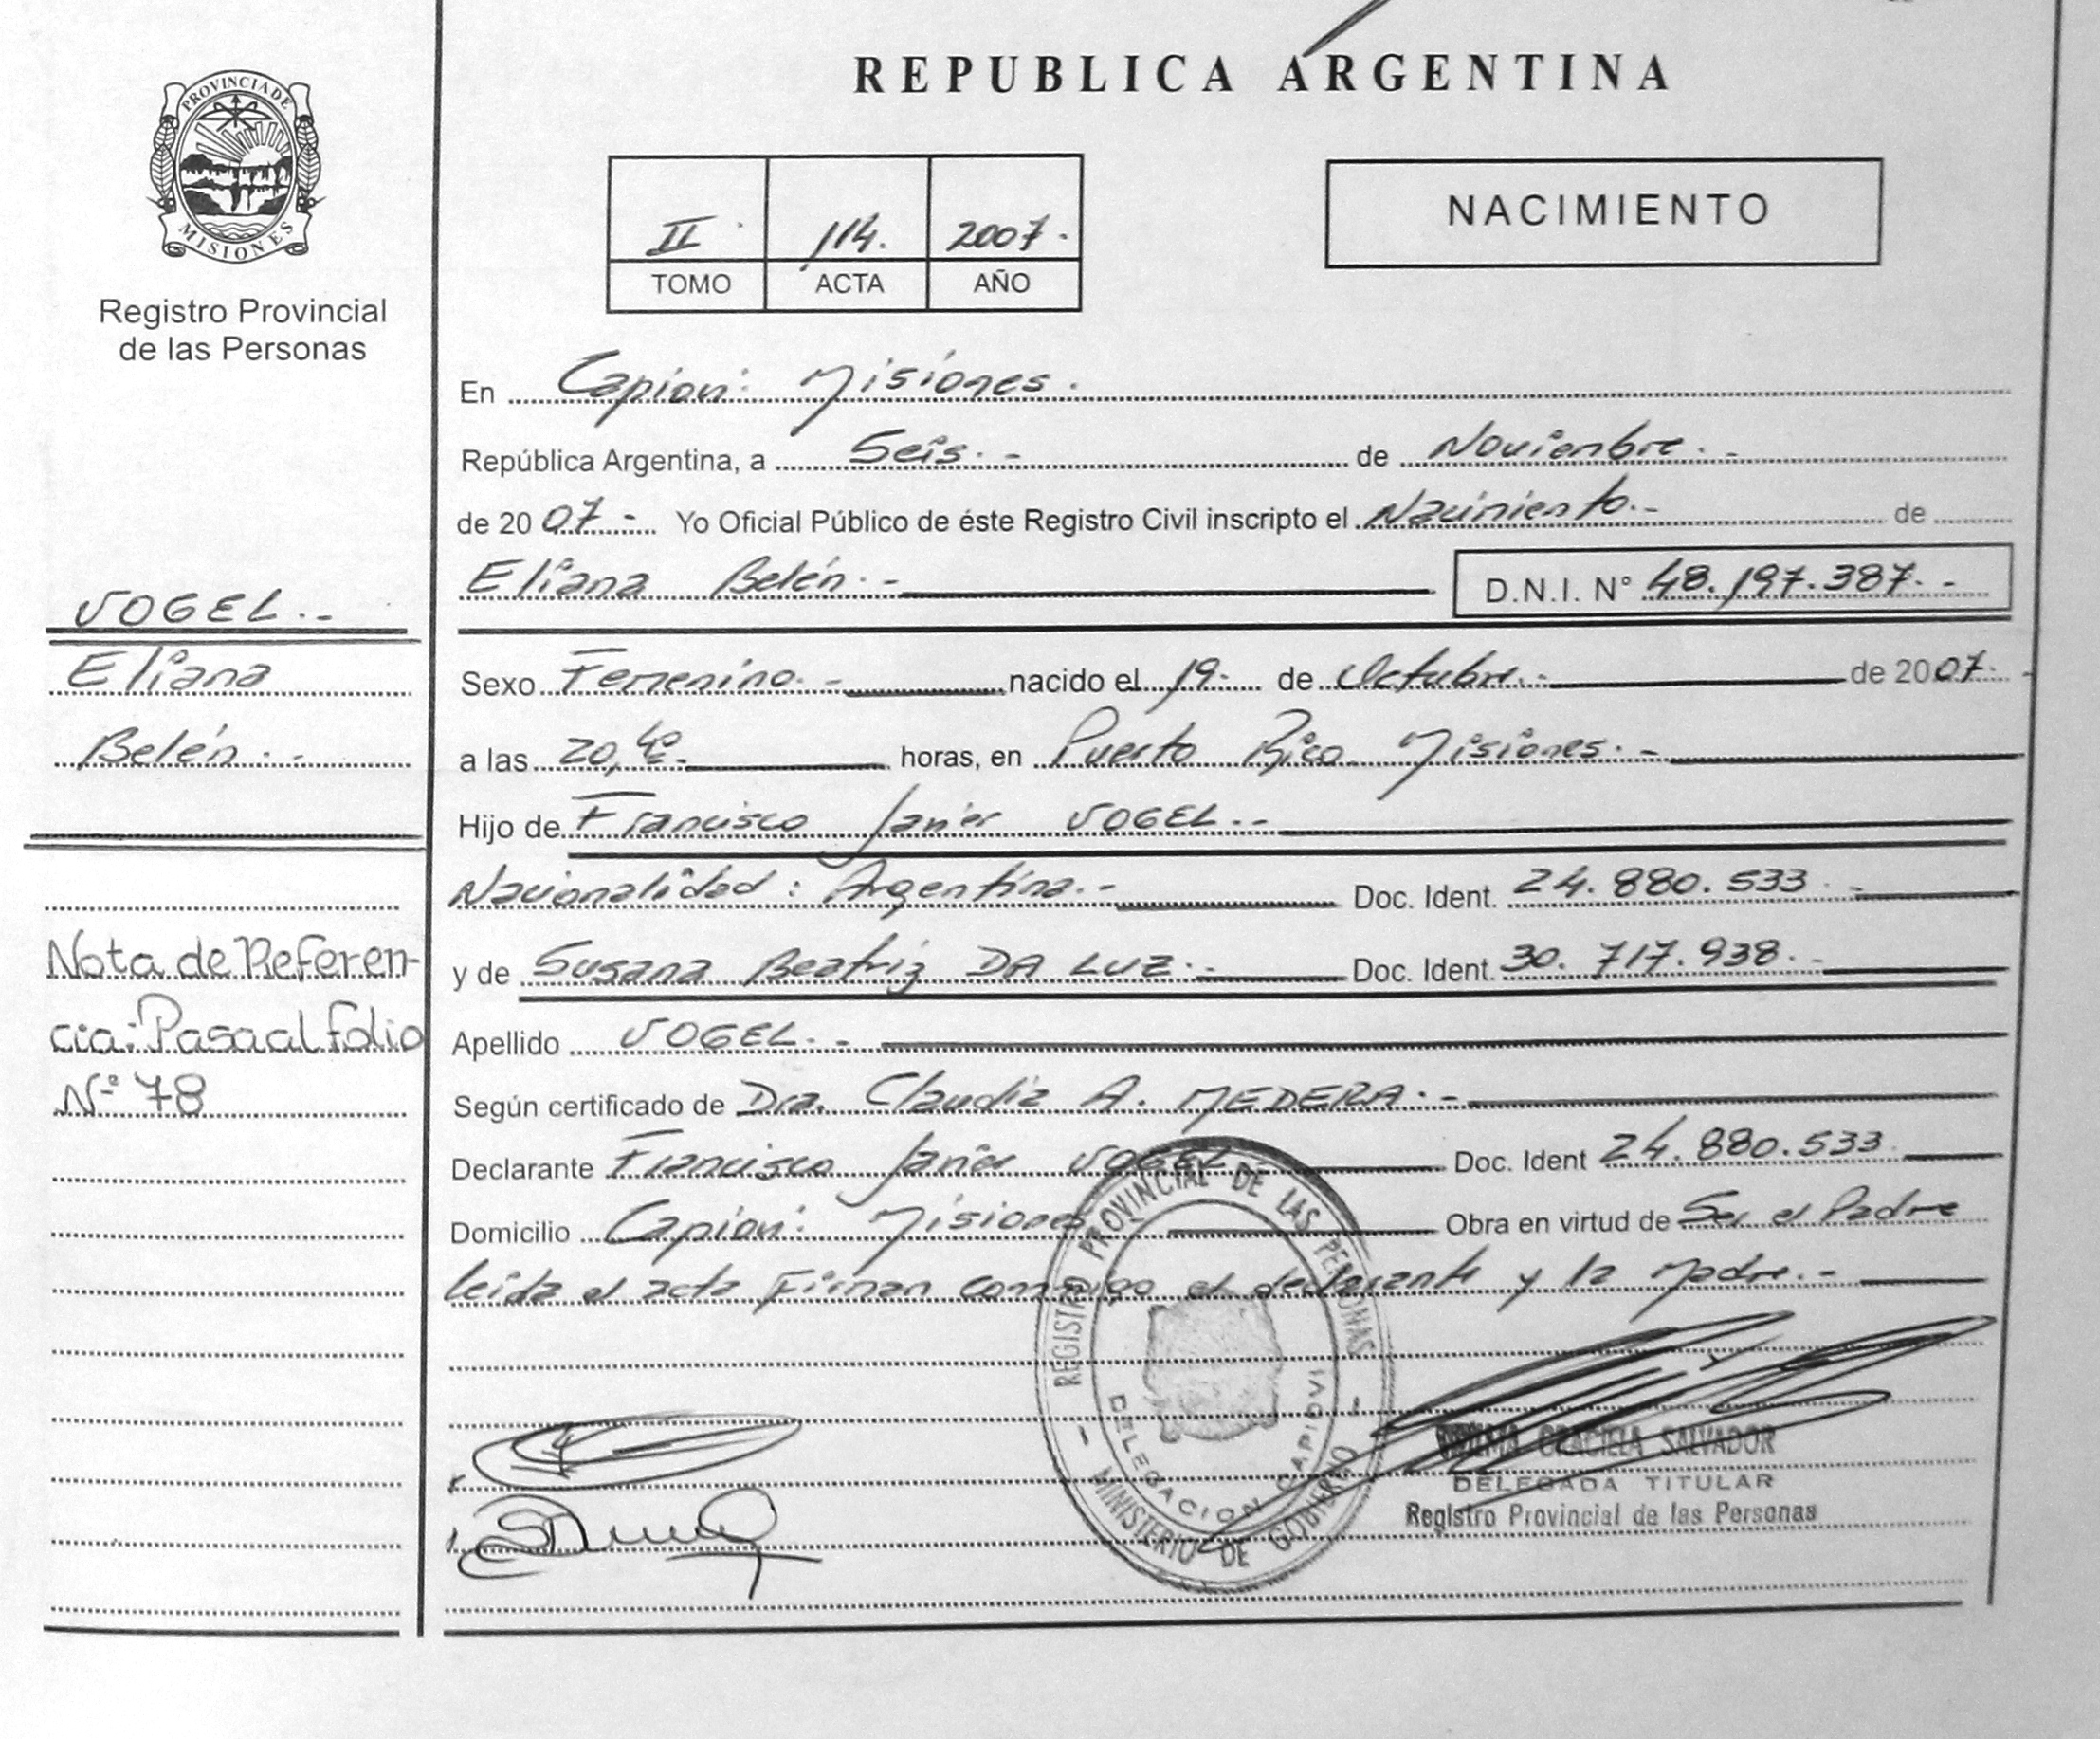 PROVINCIA DE
MISIONES
Registro Provincial
de las Personas
VOGEL.-
Eliana
Belén.-
Nota de Referen-
cia: Pasa al folio
Nº 78
REPUBLICA ARGENTINA
II. 114. 2007.
TOMO ACTA AÑO
NACIMIENTO
En Capiovi: Misiones.
República Argentina, a Seis.- de Noviembre.-
de 2007- Yo Oficial Público de éste Registro Civil inscripto el Nacimiento.- de
Eliana Belén.- D.N.I. Nº 48.197.387.-
Sexo Femenino.- nacido el 19. de Octubre.- de 2007.-
a las 20,40- horas, en Puerto Rico Misiones.-
Hijo de Francisco Javier VOGEL.-
Nacionalidad: Argentina.- Doc. Ident. 24.880.533.-
y de Susana Beatriz DA LUZ.- Doc. Ident. 30.717.938.-
Apellido VOGEL.-
Según certificado de Dra. Claudia A. MEDERA.-
Declarante Francisco Javier VOGEL Doc. Ident 24.880.533.
Domicilio Capiovi: Misiones Obra en virtud de Ser el Padre
leida el acta Firman conmigo el declarante y la Madre.-
REGISTRO PROVINCIAL DE LAS PERSONAS
DELEGACION CAPIOVI
- MINISTERIO DE GOBIERNO -
GRACIELA SALVADOR
DELEGADA TITULAR
Registro Provincial de las Personas